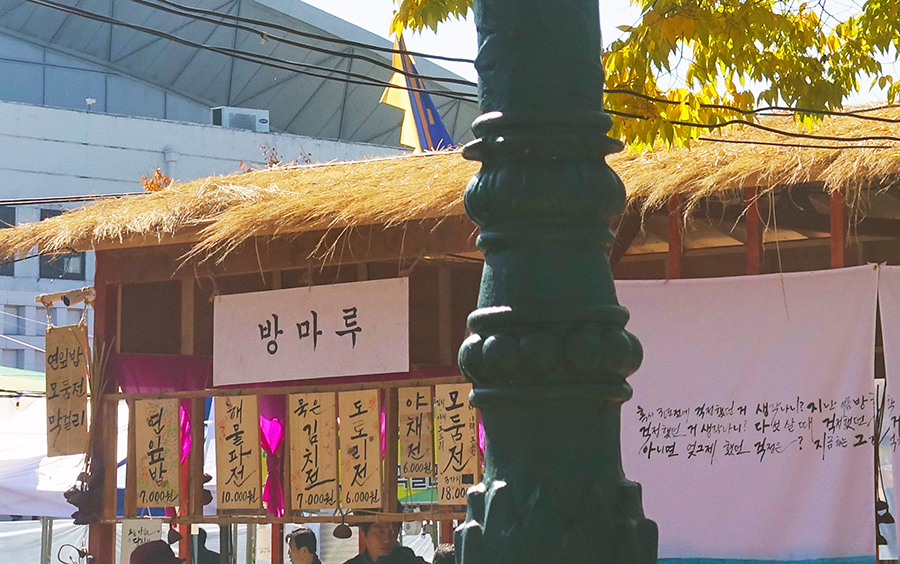 방마루
연잎밥
모둠전
막걸리
연잎밥
7.000원
해물파전
10.000원
묵은김치전
7.000원
도토리전
6.000원
야채전
6.000원
모둠전
18.000
걱정했던 거 생각나니? 지난
걱정했던 거 생각나니? 다섯 살 때 걱정했던
아니면 엊그제 했던 걱정은? 지금